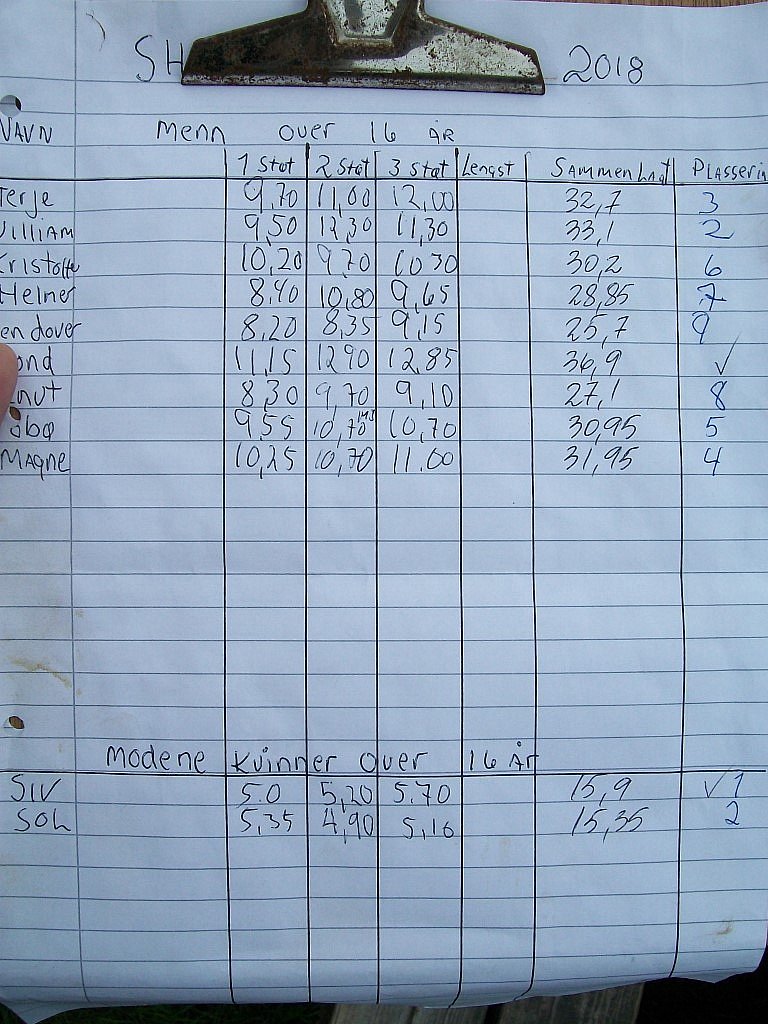 SH 2018
NAVN menn over 16 ÅR
1 Støt 2 Støt 3 Støt Lengst Sammenlagt Plasserin
Terje 9,70 11,00 12,00 32,7 3
William 9,50 12,30 11,30 33,1 2
Kristoffe 10,20 9,70 10 30 30,2 6
Helner 8,40 10,80 9,65 28,85 7
en dover 8,20 8,35 9,15 25,7 9
ond 11,15 12 90 12,85 36,9 √
nut 8,30 9,70 9,10 27,1 8
9,55 10,70 10,70 30,95 5
Magne 10,25 10,70 11.00 31,95 4
Modene Kvinner Over 16 År
SIV 5.0 5,20 5.70 15,9 √ 1
SOL 5,35 4,90 5,16 15,35 2